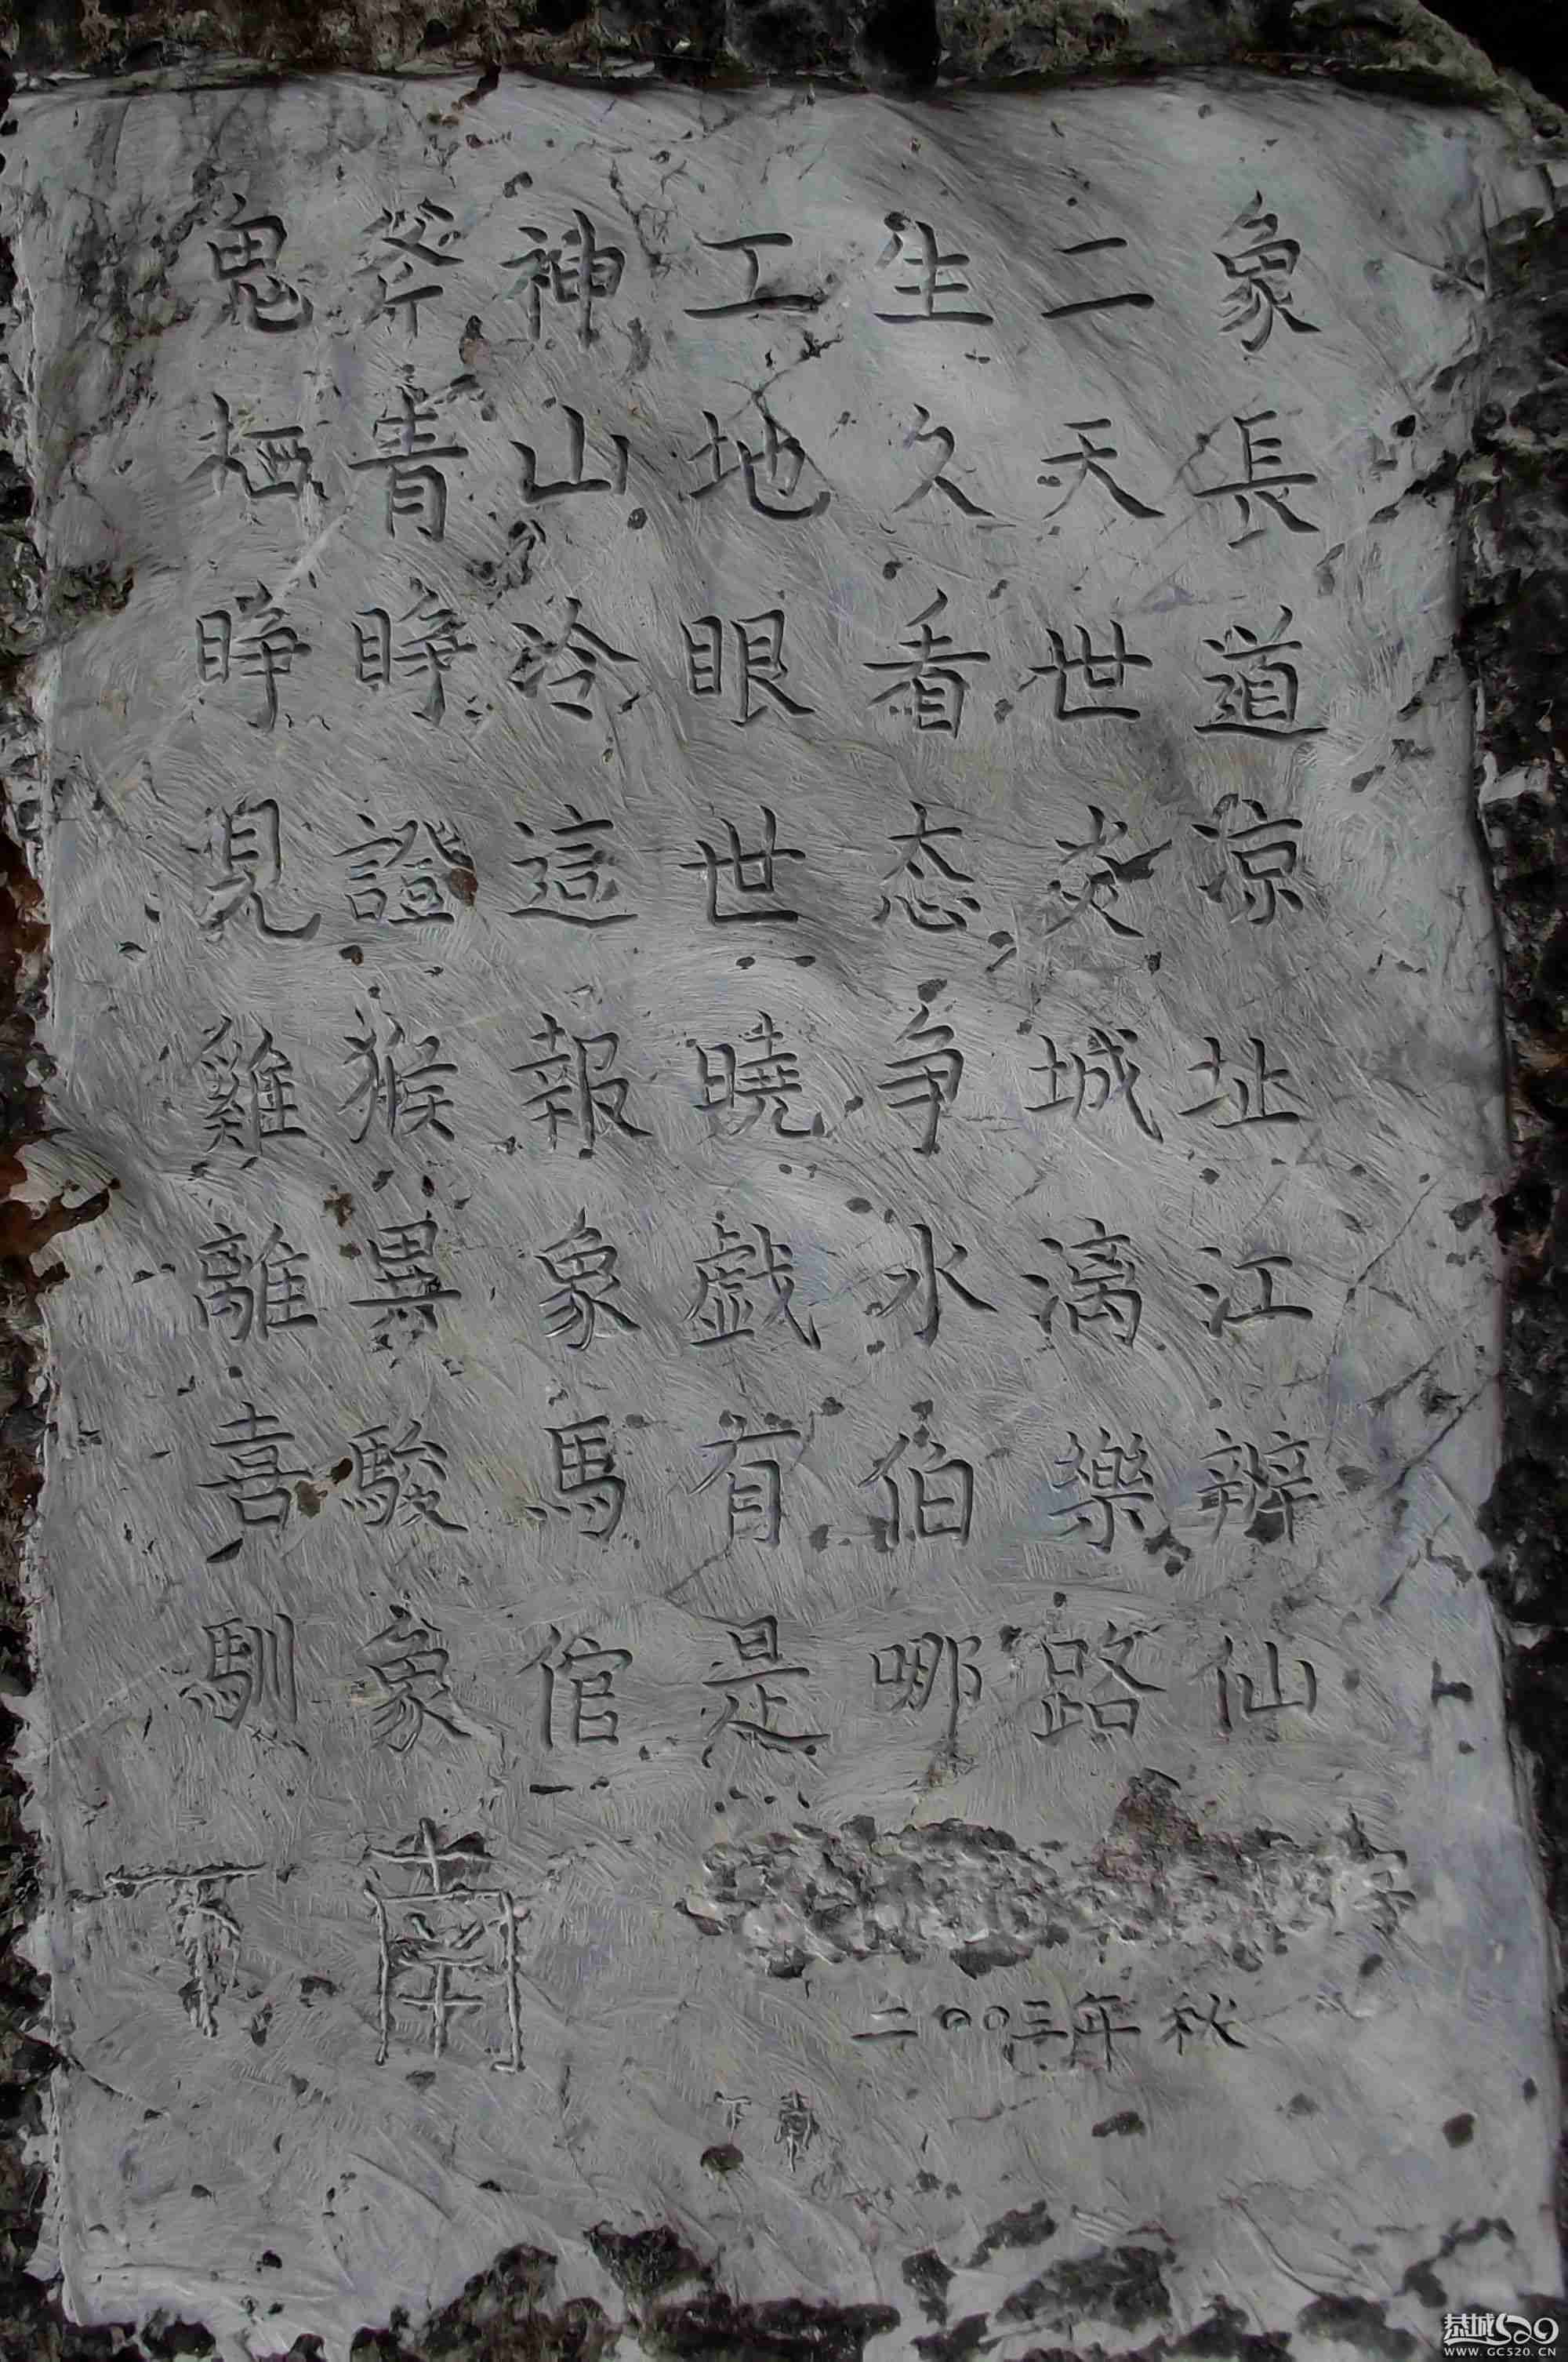 鬼斧神工生二象
栖青山地久天長
睁睁冷眼看世道
見證這世态炎凉
雞猴報曉争城址
離異象戯水漓江
喜駿馬有伯樂辨
馴象倌是哪路仙
下南
二〇〇三年秋
下南
恭城520
WWW.GC520.CN